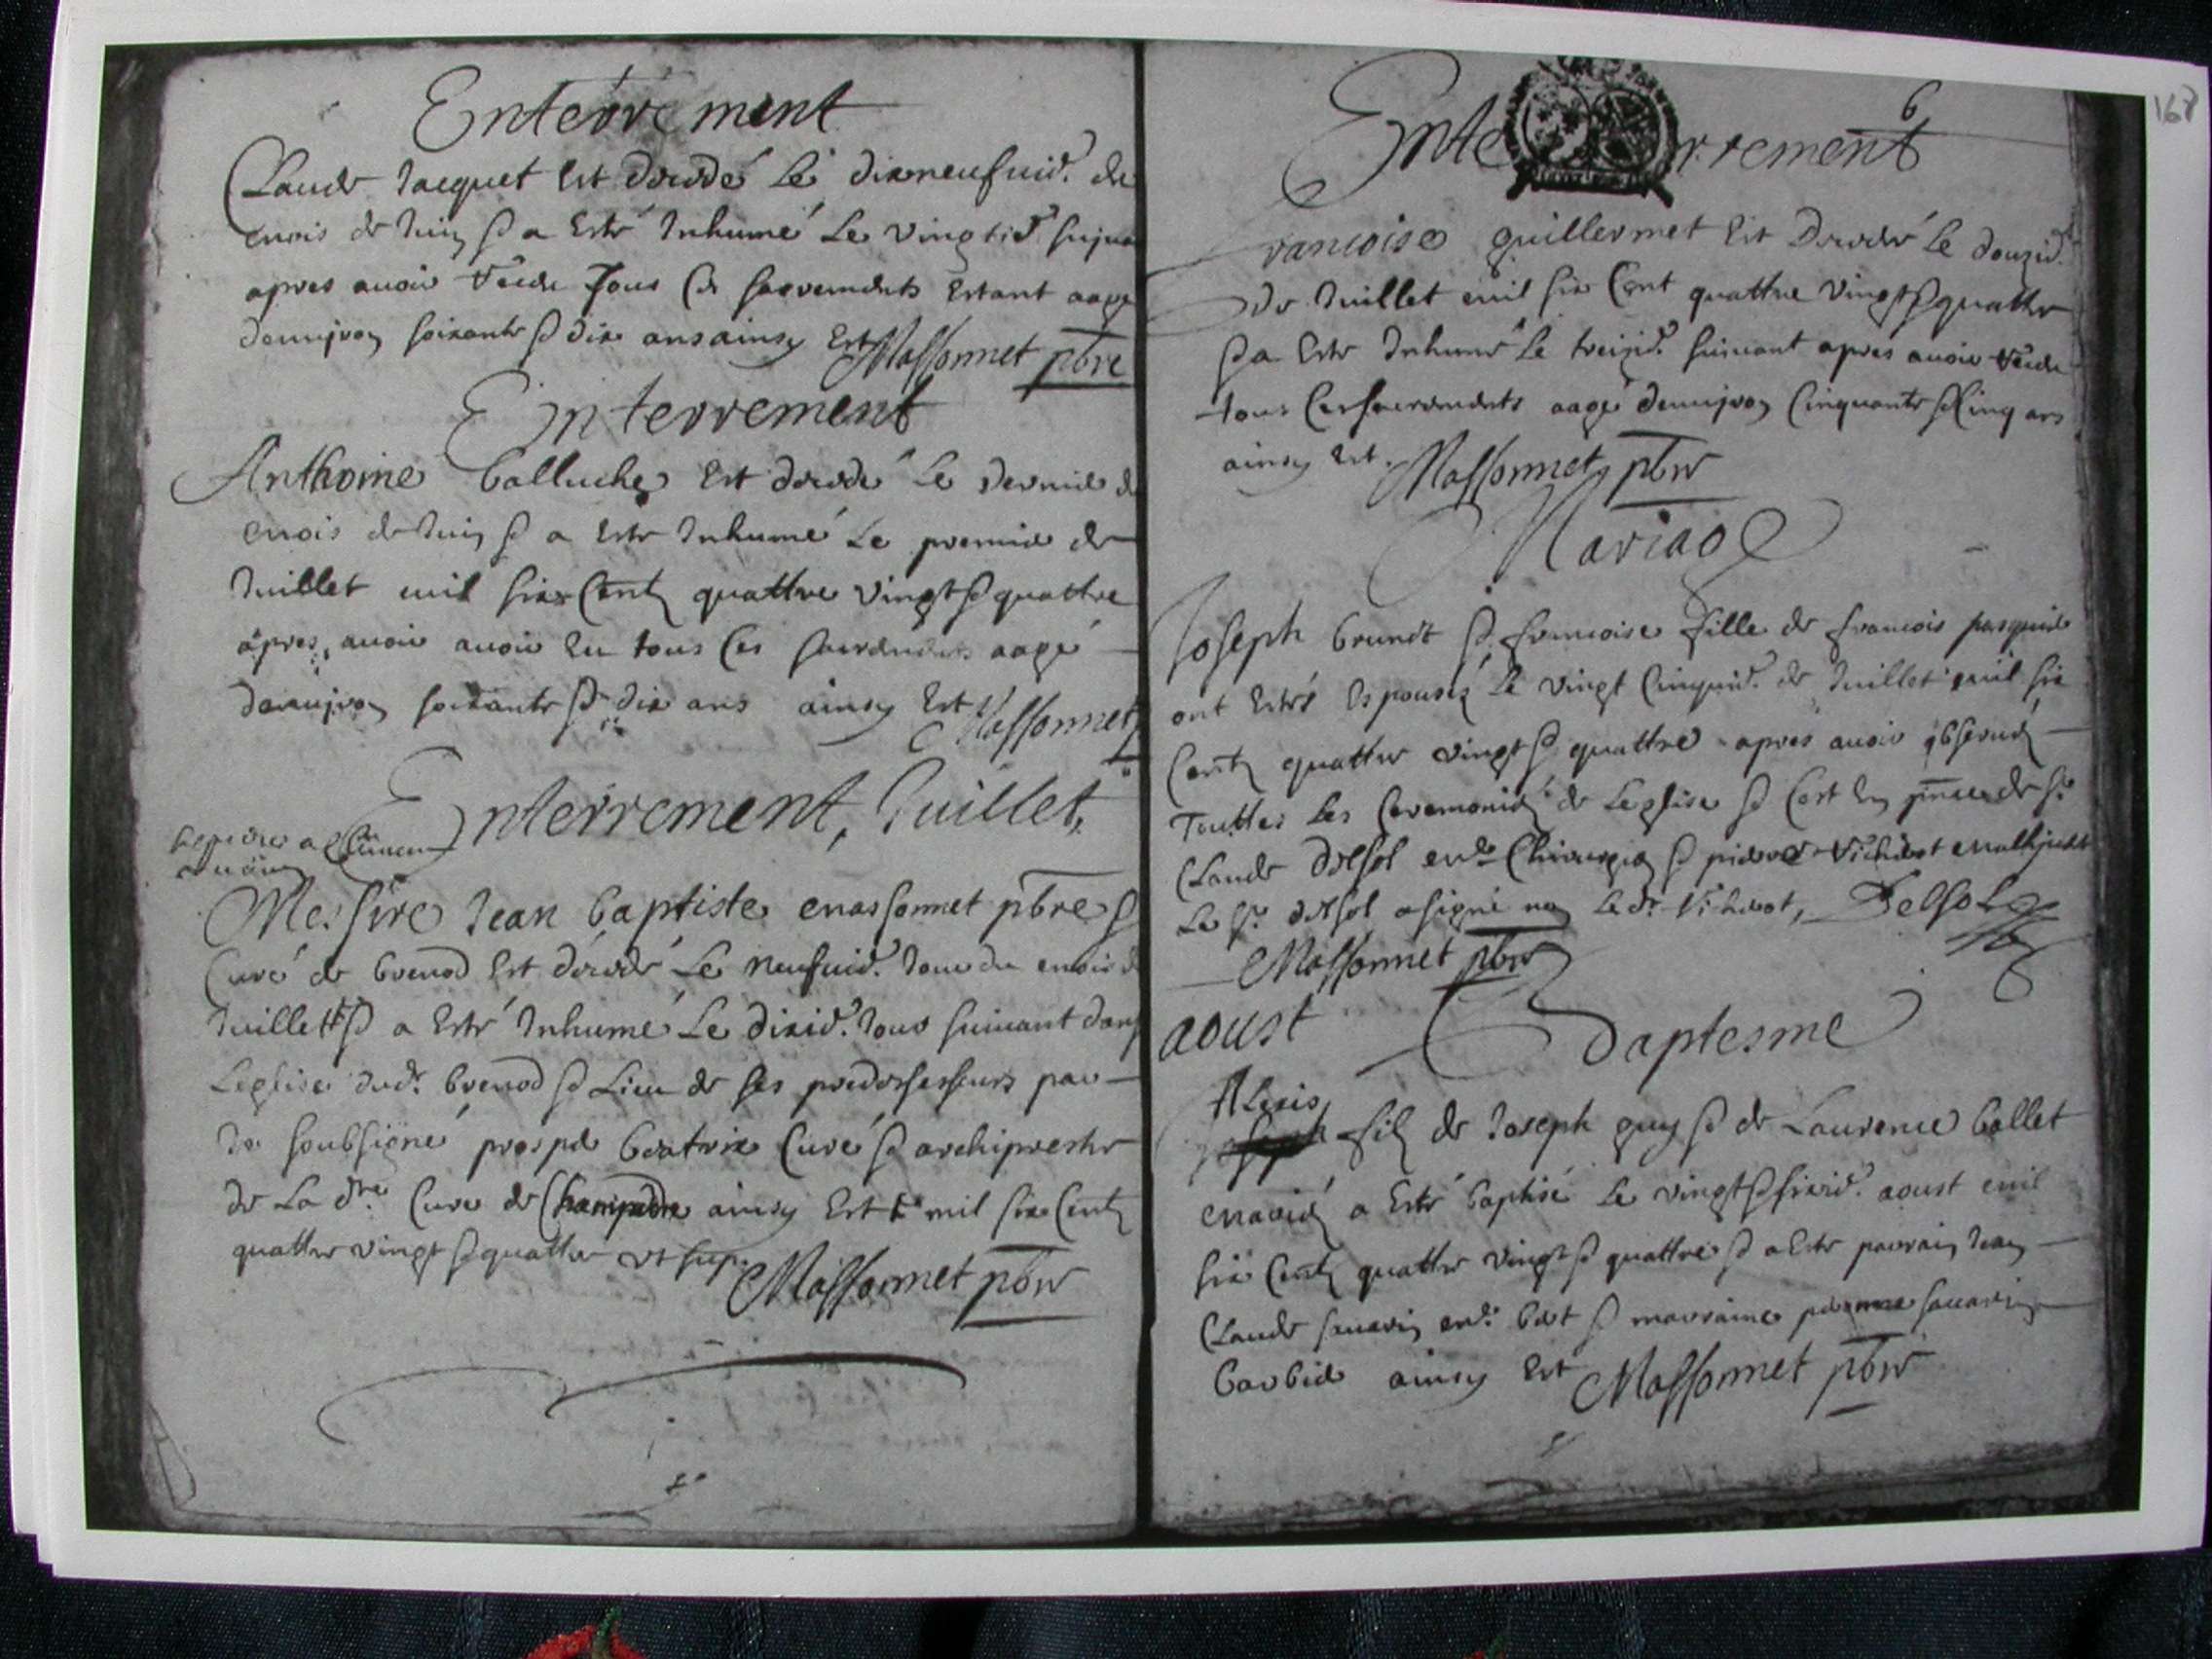 Enterrement
Claude Jacquet est decedé Le dixneufuie. de
mois de Juin & a esté Inhumé Le vingtie.
apres auoir tous Les sacrements estant aagé
demijron soixante & dix ans ainsy est Massonnet pbre
Enterrement
Anthoine balluche est decedé Le dernier d
mois de Juin & a este Inhumé Le premier de
Juillet mil six Centz quattre vingt & quattre
apres auoir auoir eu tous Les aagé
demijron soixante & dix ans ainsy Est Massonnet
Enterrement, Juillet,
Messire Jean baptiste massonnet pbre &
Curé de brenod est decedé Le neufuie. Jour du mois d
Juillett & a Esté Inhumé Le dixie. Jour suiuant dans
Leglise dud. brenod & Lieu de ses predecesseurs par
Je soubsigné prosper beatrix Curé & archiprestre
de La dte. Cure de ainsy Est mil six Centz
quattre vingt & quattre vt sup. Massonnet pbre
168
6
Enterrement
rancoise guillermet Est Decedé Le douzie.
de Juillet mil six Cent quattre vingt & quattre
& a Este Inhumé Le treizie. suiuant apres auoir
tous Les sacrements aagé demijron Cinquante & Cinq ans
ainsy est. Massonnet pbre
Mariage
Joseph brunet & francoise fille de francois pasquier
ont Estés Espousés Le vingt Cinquie. de Juillet mil six
Centz quattre vingt & quattre apres auoir obserué
Touttes Les Ceremonies de Leglise & Cest En pnce de sr
Claude delsol me. Chirurgien & pierre
Le sr. delsol a signé non Le dt. Delsol
Massonnet pbre
aoust
baptesme
Alexis
filz de Joseph guy & de Laurence ballet
mariés a Esté baptisé Le vingt & sixie. aoust mil
six Centz quattre vingt & quattre & a Este parrain Jean
Claude sauarin & marraine sauarin
barbier ainsy Est Massonnet pbre